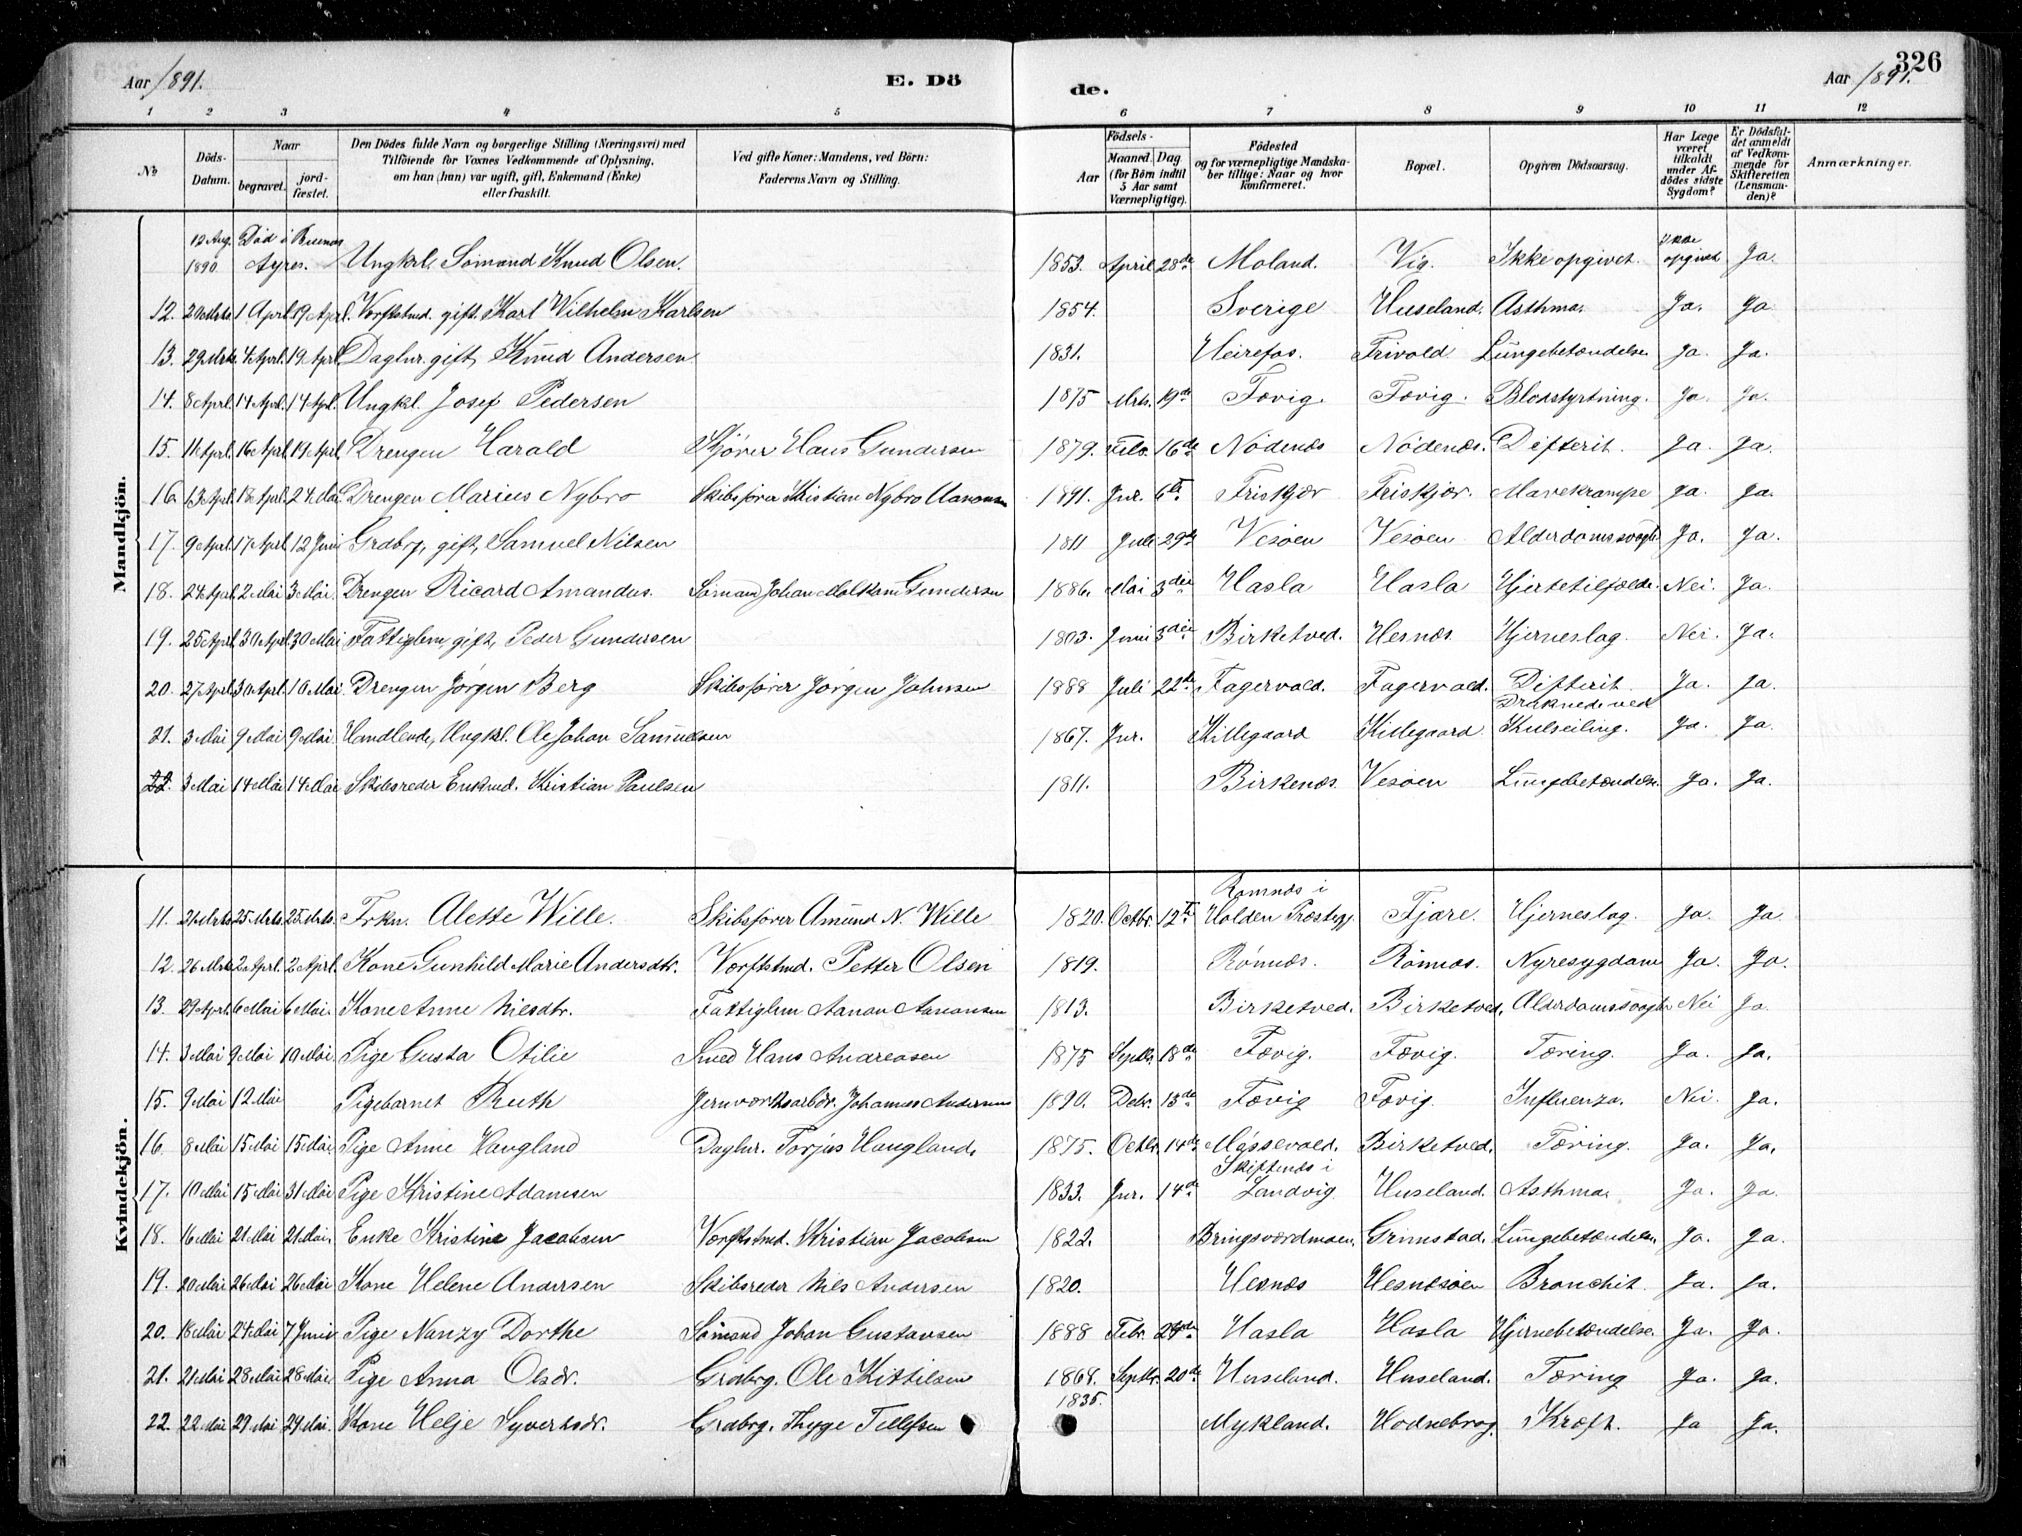 Aar 1891. E. Dö de. Aar 1891. 326
1 2 3 4 5 6 7 8 9 10 11 12
No Döds-Datum. Naar begravet. jord-fæstet. Den Dödes fulde Navn og borgerlige Stilling (Næringsvei) med Tilföiende for Voxnes Vedkommende af Oplysning, om han (hun) var ugift, gift, Enkemand (Enke) eller fraskilt. Ved gifte Koner: Mandens, ved Börn: Faderens Navn og Stilling. Födsels- Aar Maaned. Dag (for Börn indtil 5 Aar samt Værnepligtige). Födested og for værnepligtige Mandskaber tillige: Naar og hvor konfirmeret. Bopæl. Opgiven Dödsaarsag. Har Læge været tilkaldt under Afdödes sidste Sygdom? Er Dödsfaldet anmeldt af Vedkommende for Skifteretten (Lensmanden)? Anmærkninger.
Mandkjön.
12 Aug. 1890 Död i Buenos Ayres. Ungkrl. Sömand Knud Olsen. 1853. April 28de Moland. Vig. Ikke opgivet. Ikke opgivet Ja.
12. 29 Mrts 1 Aprl. 19 Aprl. Værftstmd. gift. Karl Wilhelm Karlsen 1854. Sverige Huseland. Asthma. Ja. Ja
13. 29 Mrts 4 Aprl. 19 Aprl. Daglnr. gift, Knud Andersen 1831. Heirefos. Frivold Lungebetændelse Ja. Ja.
14. 8 Aprl. 14 Aprl. 14 Aprl. Ungkl. Josef Pedersen 1875 Mrts. 19de Fævig. Fævig. Blodstyrtning. Ja. Ja.
15. 11 Aprl. 16 Aprl. 19 Aprl. Drengen Harald Skjører Hans Gundersen 1879. Feb. 16de Nödenæs Nödenæs. Difterit. Ja. Ja.
16. 13 Aprl. 18 Aprl. 24 Mai Drengen Marius Nybro Skibsfører Kristian Nybro Aanonsen 1891. Jnr. 6te Friskjær Friskjær. Mavekrampe Ja. Ja.
17. 9 Aprl. 17 Aprl. 12 Juni Grdbrg, gift, Samuel Nilsen 1811 Juli 29de Vesöen Vesöen Alderdomssvagh. Ja. Ja.
18. 24 Aprl. 2 Mai 3 Mai. Drengen Ricard Amandus. Sömand Johan Malkom Gundersen 1886. Mai 3die Hasla Hasla Hjertetilfælde. Nei. Ja.
19. 25 Aprl. 30 Aprl. 30 Mai Fattiglm, gift, Peder Gundersen 1803. Juni 3die Birketved. Hesnæs. Hjerneslag. Nei. Ja.
20. 27 Aprl. 30 Aprl. 10 Mai. Drengen Jörgen Berg Skibsfører Jörgen Johnsen 1888 Juli 22de Fagervold. Fagervold. Difterit. Ja. Ja.
21. 3 Mai 9 Mai 9 Mai. Handlende, Ungkl. Ole Johan Samuelsen 1867. Jnr. Killegaard Killegaard Druknede ved Kulseiling. Ja. Ja.
22. 3 Mai 14 Mai 14 Mai Skibsreder Enkmd. Kristian Paulsen 1811. Birkenæs. Vesöen Lungebetændelse. Ja. Ja.
Kvindekjön.
11. 21 Mrts 25 Mrts. 25 Mrts. Frkn. Alette Wille. Skibsfører Amund N. Wille 1820. Octbr. 12te Romnæs i Holden Præstegj. Fjære. Hjerneslag. Ja. Ja.
12. 26 Mrts 2 Aprl. 2 Aprl. Kone Gunhild Marie Andersdtr. Værftstmd. Petter Olsen 1819. Rönnæs. Rönnæs. Nyresygdom Ja. Ja.
13. 29 Aprl. 6 Mai 6 Mai. Kone Anne Nilsdtr. Fattiglm Aanon Aanonsen 1813. Birketved. Birketved. Alderdomssvagh. Nei Ja.
14. 3 Mai 9 Mai 10 Mai. Pige Gusta Otilie Smed Hans Andreasen 1875 Septbr. 18de Fævig. Fævig. Tæring. Ja. Ja.
15. 9 Mai 12 Mai Pigebarnet Ruth Jernværksarbdr. Johannes Andersen 1890. Debr. 15de Fævig Fævig. Influenza. Nei. Ja.
16. 8 Mai 15 Mai 15 Mai. Pige Anne Haugland Daglnr. Torjus Haugland. 1875. Octbr. 14de Mössevold. Birketved. Tæring. Ja. Ja.
17. 10 Mai 15 Mai 31 Mai Pige Kristine Adamsen 1833. Jnr. 14de Skiftenæs i Landvig. Huseland. Asthma. Ja. Ja.
18. 16 Mai 21 Mai 21 Mai. Enke Kristine Jacobsen Værftstmd. Kristian Jacobsen 1822. Bringsværdmoen. Grimstad. Lungebetændelse Ja. Ja.
19. 20 Mai 26 Mai 26 Mai. Kone Helene Andersen Skibsreder Nils Andersen 1820. Hesnæs Hesnæsöen Bronchit. Ja. Ja.
20. 18 Mai 24 Mai 7 Juni Pige Nanzy Dorthe Sömand Johan Gustavsen 1888 Febr. 29de Hasla Hasla Hjernebetændelse. Ja. Ja.
21. 21 Mai 28 Mai 28 Mai Pige Anna Olsdr. Grdbrg. Ole Kittilsen 1868. Septbr. 20de Huseland. Huseland. Tæring Ja. Ja.
22. 22 Mai 29 Mai 29 Mai. Kone Helje Syvertsdr. Grdbrg. Thygge Tellefsen 1835. Mykland. Hodnebrog. Kræft. Ja Ja.